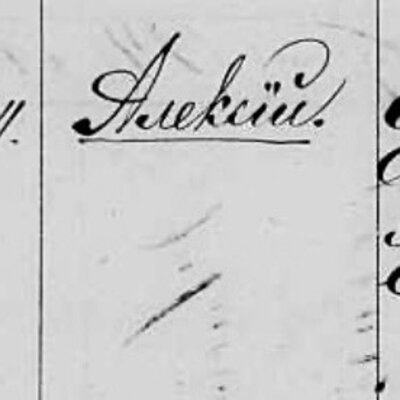 Алексій.